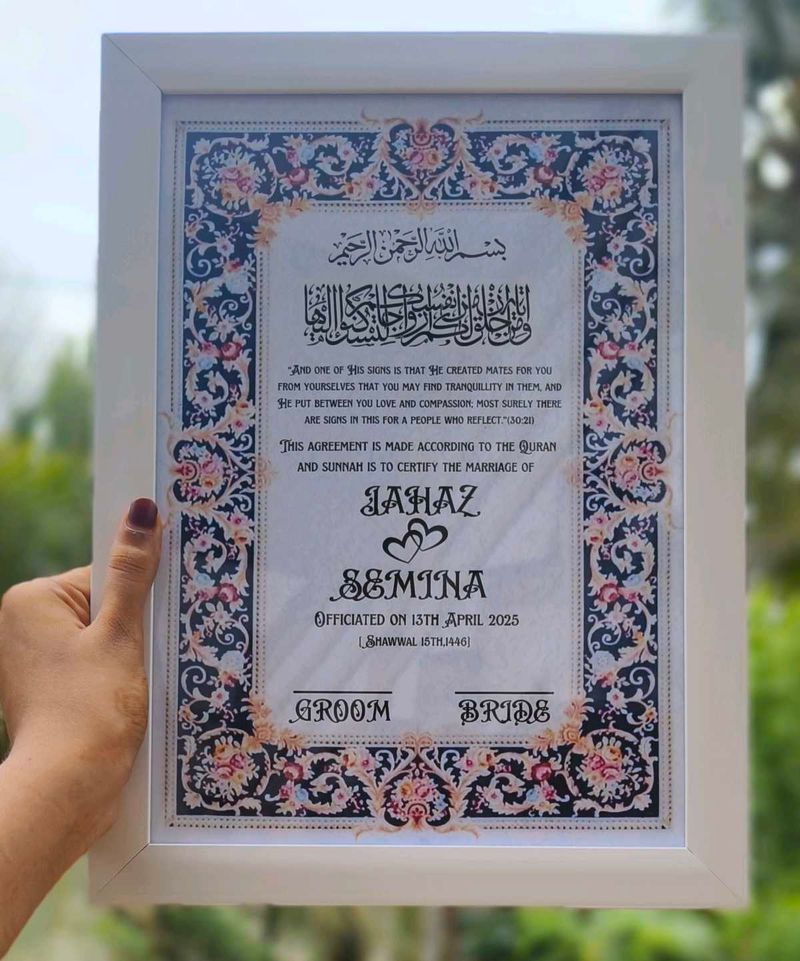 بسم الله الرحمن الرحيم
ومن آياته أن خلق لكم من أنفسكم أزواجا لتسكنوا إليها
"And one of His signs is that He created mates for you
from yourselves that you may find tranquillity in them, and
He put between you love and compassion; most surely there
are signs in this for a people who reflect."(30:21)
This agreement is made according to the Quran
and sunnah is to certify the marriage of
JAHAZ
SEMINA
Officiated on 13th April 2025
[ Shawwal 15th,1446]
GROOM
BRIDE